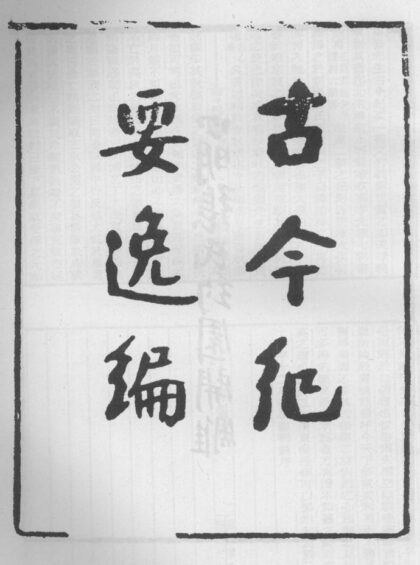 古今紀
要逸編